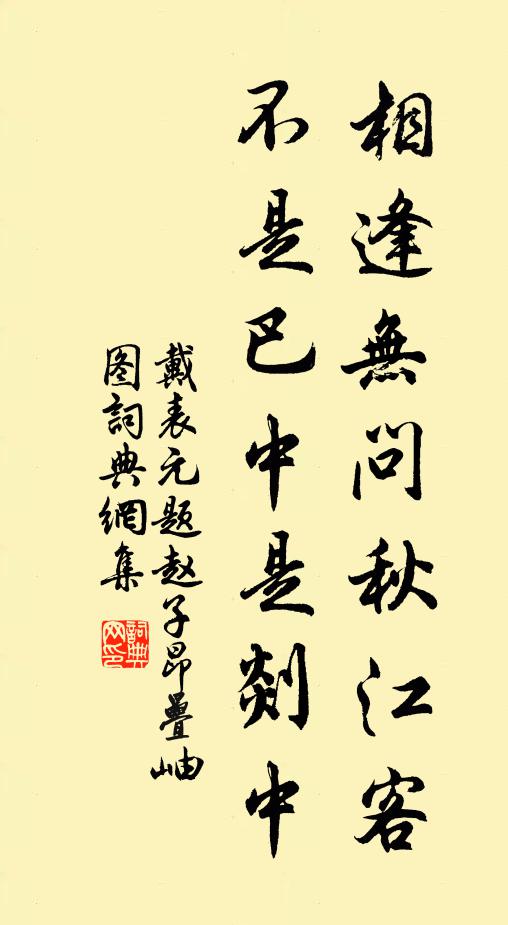 相逢無問秋江客
不是巴中是剡中
戴表元题赵子昂疊岫
图詞典網集
詞典
网印